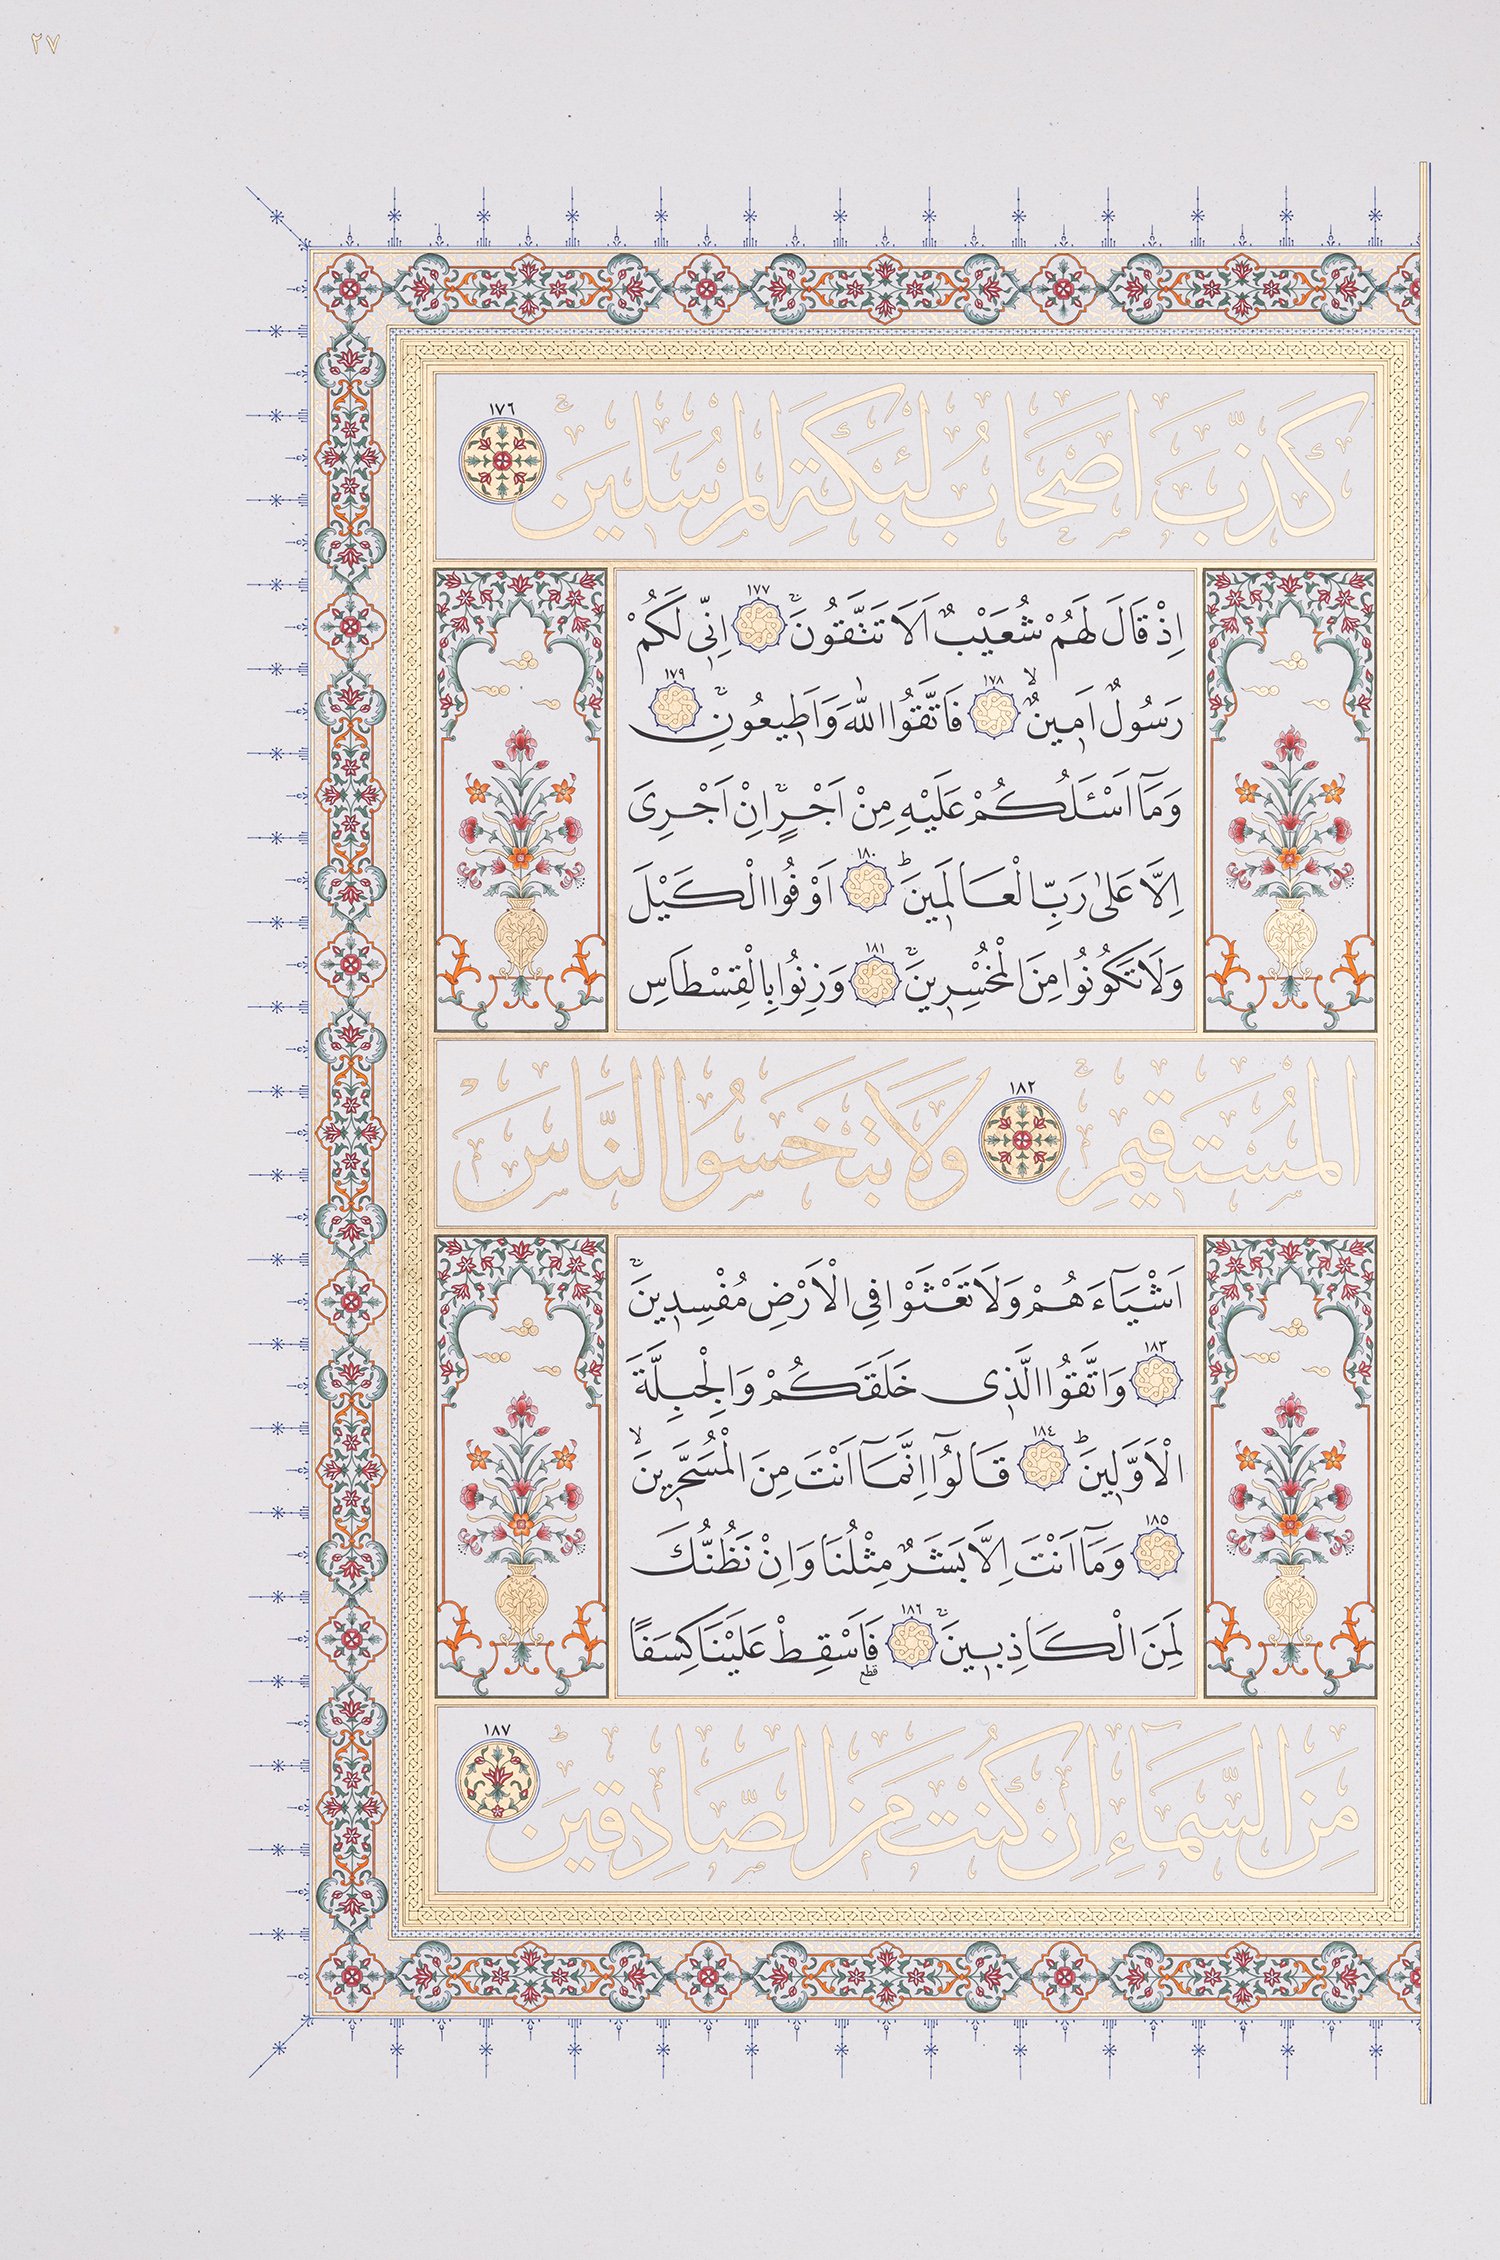 ٢٧
كَذَّبَ اَصْحَابُ لْـَٔيْكَةِ الْمُرْسَلِينَۚ ١٧٦
اِذْ قَالَ لَهُمْ شُعَيْبٌ اَلَا تَتَّقُونَۚ ١٧٧ اِنّ۪ى لَكُمْ
رَسُولٌ اَم۪ينٌۙ ١٧٨ فَاتَّقُوا اللّٰهَ وَاَط۪يعُونِۚ ١٧٩
وَمَٓا اَسْـَٔلُكُمْ عَلَيْهِ مِنْ اَجْرٍۚ اِنْ اَجْرِىَ
اِلَّا عَلٰى رَبِّ الْعَالَم۪ينَۜ ١٨٠ اَوْفُوا الْكَيْلَ
وَلَا تَكُونُوا مِنَ الْمُخْسِر۪ينَۚ ١٨١ وَزِنُوا بِالْقِسْطَاسِ
الْمُسْتَق۪يمِۚ ١٨٢ وَلَا تَبْخَسُوا النَّاسَ
اَشْيَٓاءَهُمْ وَلَا تَعْثَوْا فِى الْاَرْضِ مُفْسِد۪ينَۚ
١٨٣ وَاتَّقُوا الَّذ۪ى خَلَقَكُمْ وَالْجِبِلَّةَ
الْاَوَّل۪ينَۜ ١٨٤ قَالُٓوا اِنَّمَٓا اَنْتَ مِنَ الْمُسَحَّر۪ينَۙ
١٨٥ وَمَٓا اَنْتَ اِلَّا بَشَرٌ مِثْلُنَا وَاِنْ نَظُنُّكَ
لَمِنَ الْكَاذِب۪ينَۚ ١٨٦ فَاَسْقِطْ عَلَيْنَا كِسَفًا
قطع
مِنَ السَّمَٓاءِ اِنْ كُنْتَ مِنَ الصَّادِق۪ينَۜ ١٨٧